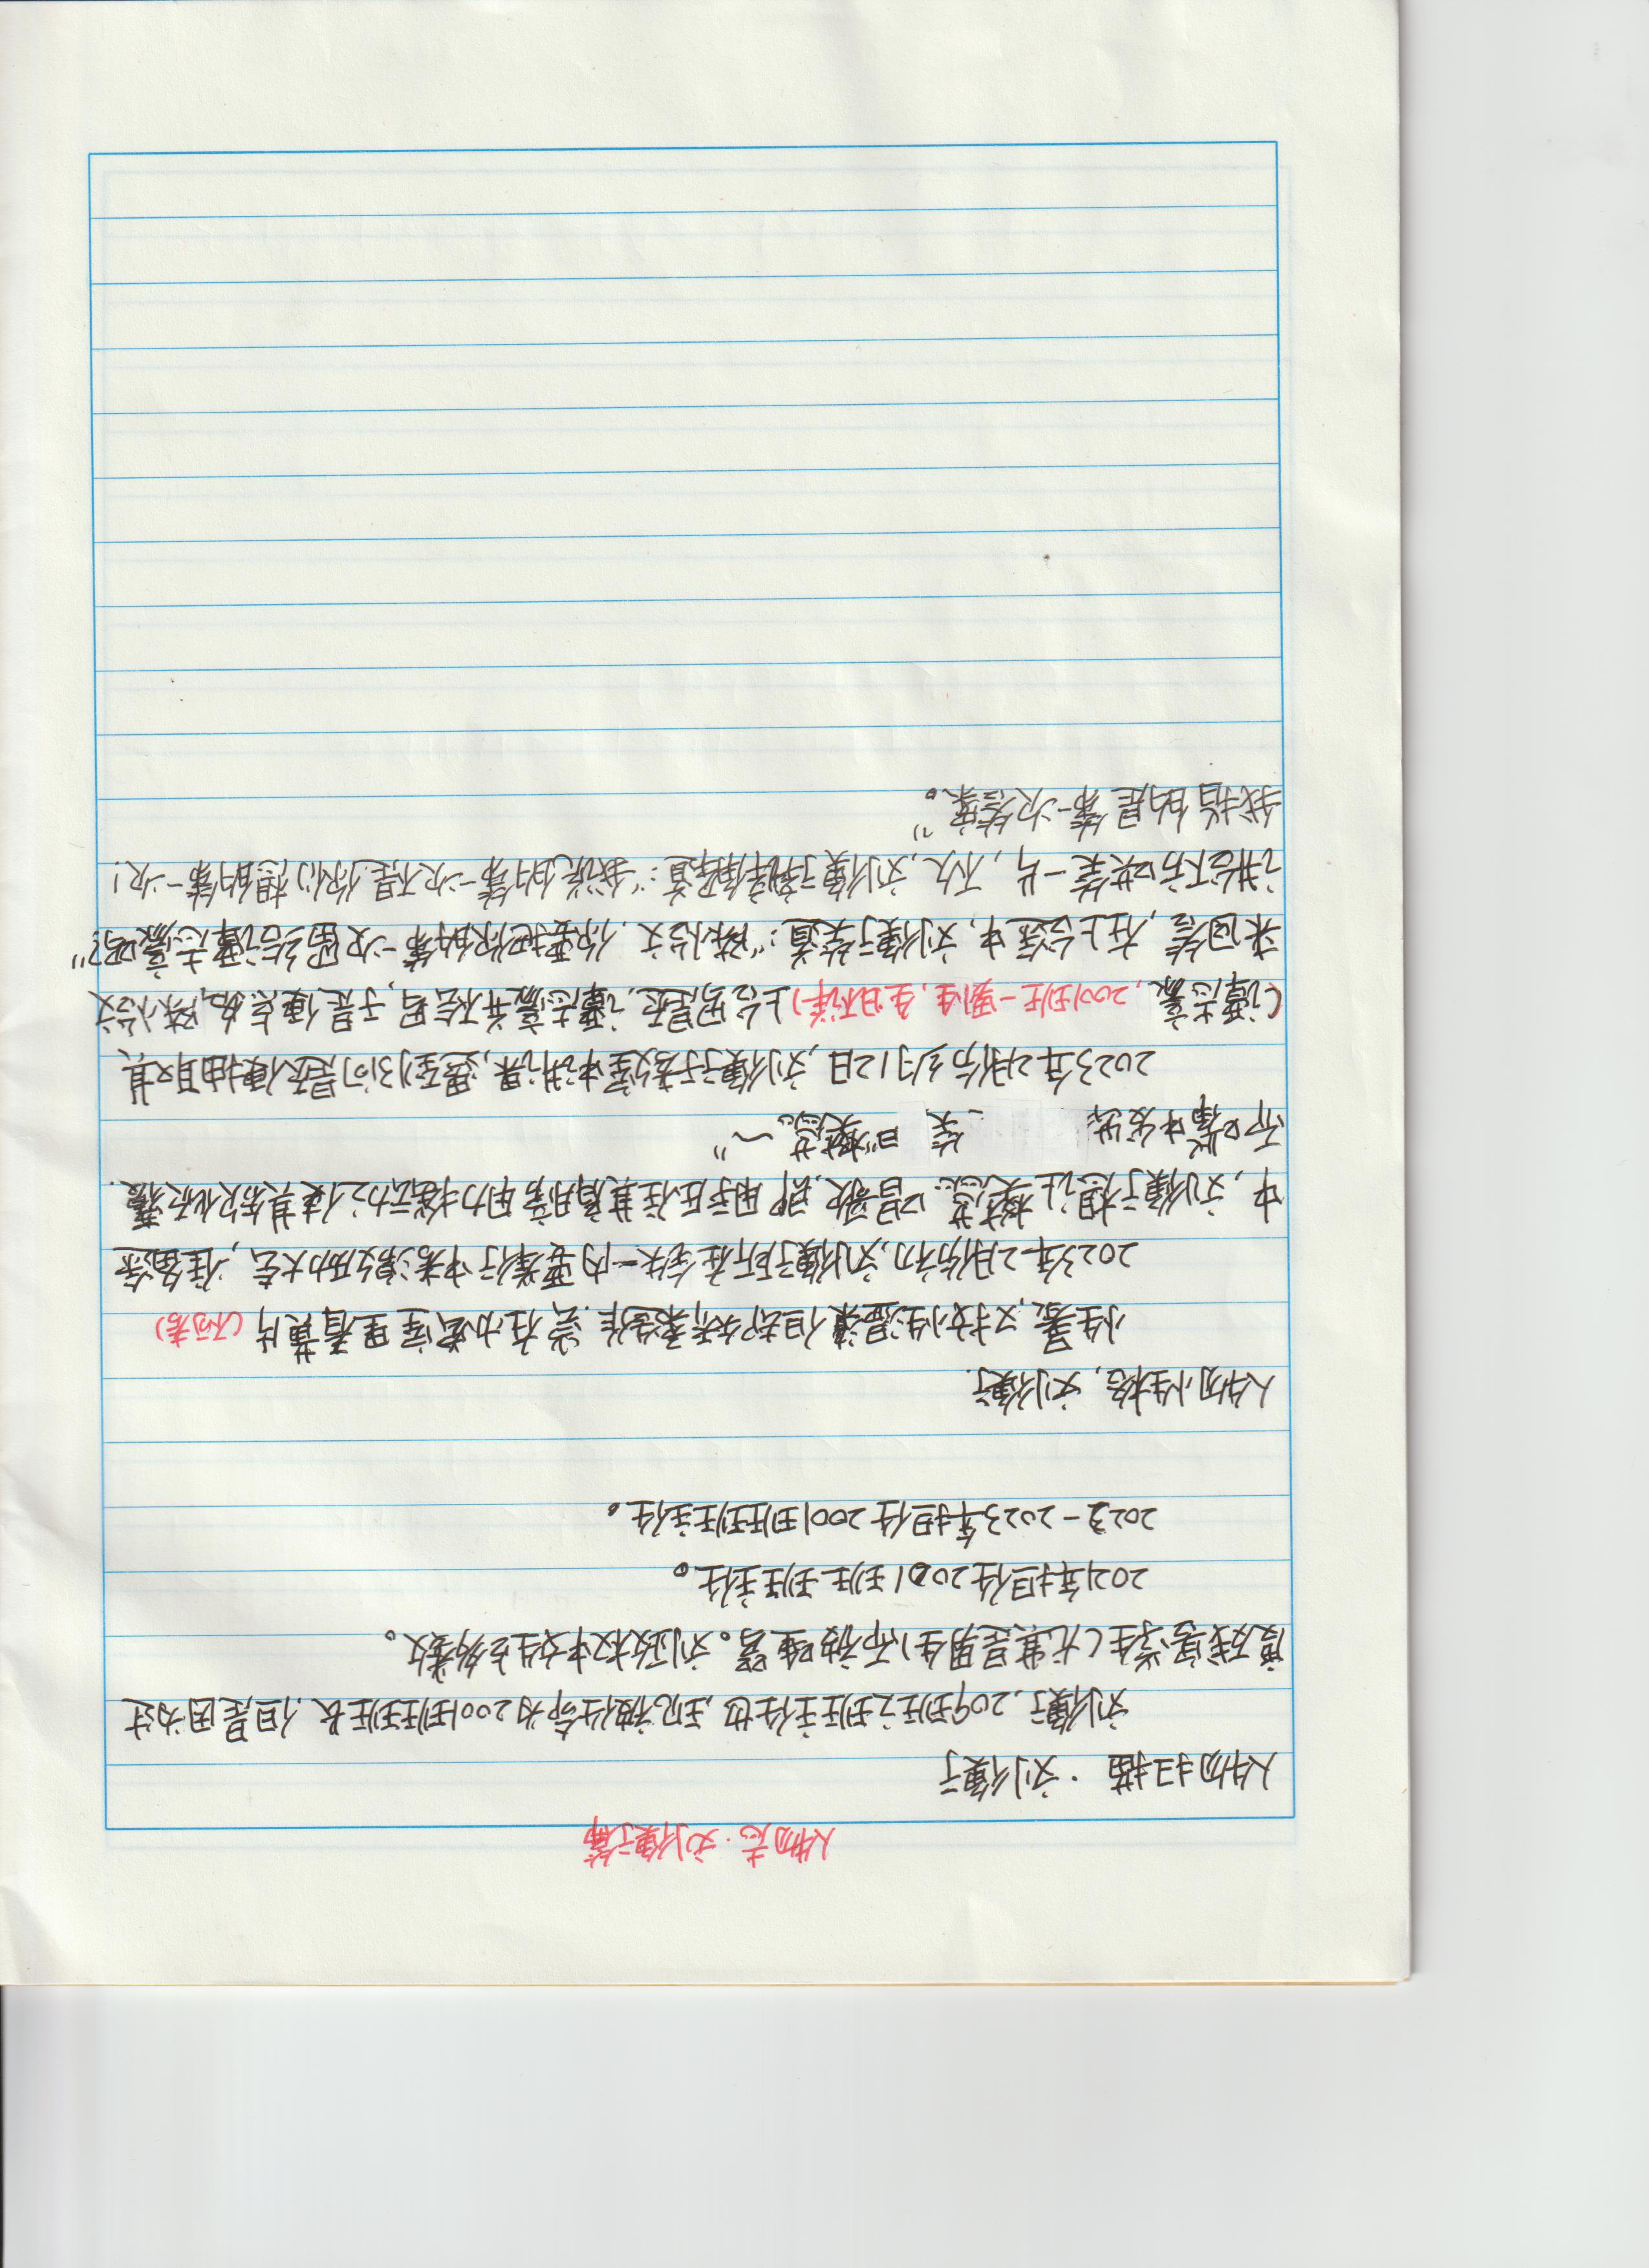 人物志·刘衡篇
人物扫描·刘衡
刘衡,209班之班主任也,现被任命为2001班班长.但是因为过
度残害学生(尤其是男生)而被唾骂。刘政权中女生占多数。
2021年担任2001班班主任。
2022-2023年担任2001班班主任。
人物性格,刘衡.
性暴,又找性温 但却矫柔造作.尝在办公室里看黄片(不可考)
2023年2月份初,刘衡所在铁一内要举行中考激励大会,准备途
中,刘衡想让樊蕊唱歌,即用手压住其肩膀用力摇动之使其欲倾覆.
而嘴中发出 笑 曰“樊蕊~”
2023年2月份约12日,刘衡于教室中讲课,遇到问题便抽取其
(谭志豪,2001班一男性,生日不详)上台写题,谭志豪并不会写,于是便点名陈怡文
来回答,在上台途中,刘衡笑道:“陈怡文,你要把你的第一次留给谭志豪吗?”
讲台下方哄笑一片,不久,刘衡辩解道:“我说的第一次不是你们想的第一次!
我指的是第一次答案。”